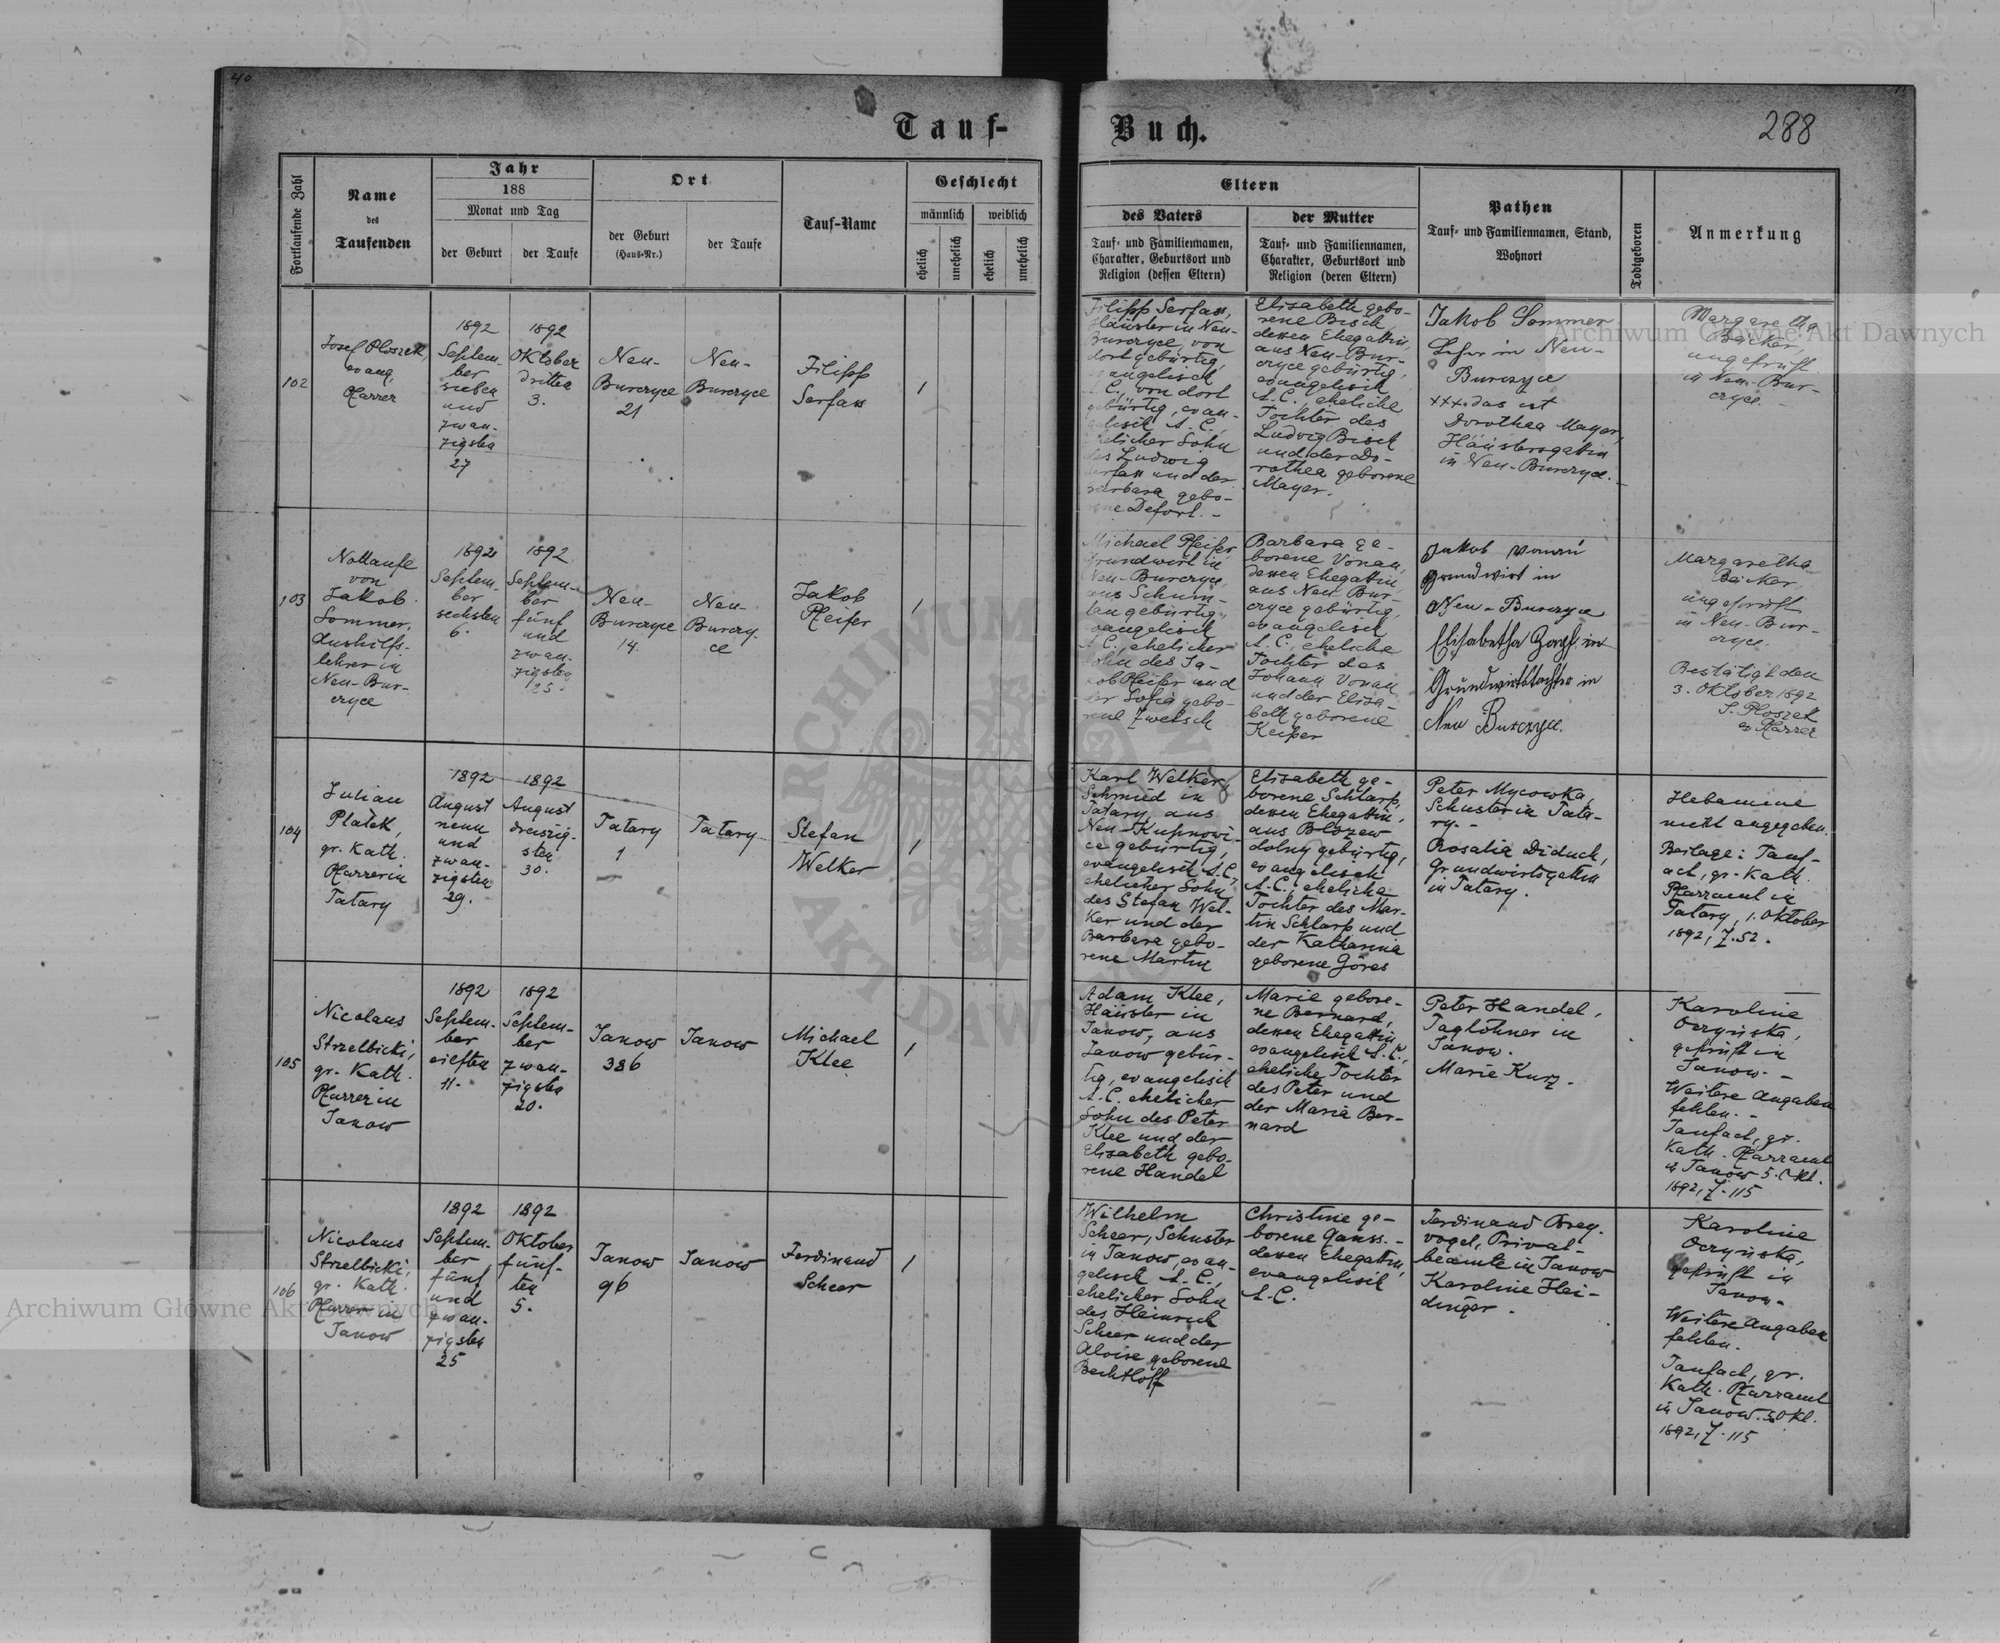 40
Tauf-
Buch.
288
Fortlaufende Zahl
Name
des
Taufenden
Jahr
188
Monat und Tag
der Geburt
der Taufe
Ort
der Geburt
(Haus-Nr.)
der Taufe
Tauf-Name
Geschlecht
männlich
weiblich
ehelich
unehelich
ehelich
unehelich
Eltern
des Vaters
Tauf- und Familiennamen,
Charakter, Geburtsort und
Religion (dessen Eltern)
der Mutter
Tauf- und Familiennamen,
Charakter, Geburtsort und
Religion (deren Eltern)
Pathen
Tauf- und Familiennamen, Stand,
Wohnort
Todtgeboren
Anmerkung
102
Josef Ploszek,
evang.
Pfarrer
1892
Septem-
ber
sieben
und
zwan-
zigsten
27
1892
Oktober
dritten
3.
Neu-
Burczyce
21
Neu-
Burczyce
Filipp
Serfass
1
Filipp Serfass,
Häusler in Neu-
Burczyce, von
dort gebürtig,
evangelisch
A.C., von dort
gebürtig, evan-
gelisch A.C.,
ehelicher Sohn
des Ludwig
Serfass und der
Barbara gebo-
rene Defort. -
Elisabeth gebo-
rene Bisch
dessen Ehegattin,
aus Neu-Bur-
czyce gebürtig,
evangelisch
A.C., eheliche
Tochter des
Ludwig Bisch
und der Do-
rothea geborene
Mayer.
Jakob Sommer
Lehrer in Neu-
Burczyce
xxx. das ist
Dorothea Mayer,
Häuslersgattin
in Neu-Burczyce. -
Margaretha
Bäcker,
ungeprüft
in Neu-Bur-
czyce. -
103
Nottaufe
von
Jakob
Sommer,
Aushilfs-
lehrer in
Neu-Bur-
czyce
1892
Septem-
ber
sechsten
6.
1892
Septem-
ber
fünf
und
zwan-
zigsten
25.
Neu-
Burczyce
14.
Neu-
Burczy-
ce
Jakob
Pfeifer
1
Michael Pfeifer
Grundwirt in
Neu-Burczyce
aus Schum-
lau gebürtig,
evangelisch
A.C., ehelicher
Sohn des Ja-
kob Pfeifer und
der Sofia gebo-
rene Zwetsch
Barbara ge-
borene Vonau,
dessen Ehegattin
aus Neu Bur-
czyce gebürtig,
evangelisch
A.C., eheliche
Tochter des
Johann Vonau
und der Elisa-
beth geborene
Keiper
Jakob
Grundwirt in
Neu-Burczyce
Elisabetha
Grundwirtstochter in
Neu Burczyce.
Margaretha
Bäcker,
ungeprüft
in Neu-Bur-
czyce.
Bestätigt den
3. Oktober 1892
J. Ploszek
ev. Pfarrer
104
Julian
Platek,
gr. Kath.
Pfarrer in
Tatary
1892
August
neun
und
zwan-
zigsten
29.
1892
August
dreiszig-
sten
30.
Tatary
1
Tatary
Stefan
Welker
1
Karl Welker,
Schmied in
Tatary, aus
Neu-Kupnowi-
ce gebürtig,
evangelisch A.C.,
ehelicher Sohn
des Stefan Wel-
ker und der
Barbara gebo-
rene Martin
Elisabeth ge-
borene Schlarp,
dessen Ehegattin,
aus Blozew
dolny gebürtig,
evangelisch
A.C., eheliche
Tochter des Mar-
tin Schlarp und
der Katharina
geborene Göres
Peter Mycowka,
Schuster in Tata-
ry. -
Rosalia Diduch,
Grundwirtsgattin
in Tatary.
Hebamme
nicht angegeben.
Beilage: Tauf-
act, gr. Kath.
Pfarramt in
Tatary, 1. Oktober
1892, Z. 52.
105
Nicolaus
Strzelbicki,
gr. Kath.
Pfarrer in
Janow
1892
Septem-
ber
eilften
11.
1892
Septem-
ber
zwan-
zigsten
20.
Janow
386
Janow
Michael
Klee
1
Adam Klee,
Häusler in
Janow, aus
Janow gebür-
tig, evangelisch
A.C. ehelicher
Sohn des Peter
Klee und der
Elisabeth gebo-
rene Handel
Marie gebore-
ne Bernard,
dessen Ehegattin
evangelisch A.C.,
eheliche Tochter
des Peter und
der Maria Ber-
nard
Peter Handel,
Taglöhner in
Janow.
Marie Kurz.
Karoline
Oczyńska,
geprüft in
Janow. -
Weitere Angaben
fehlen. -
Taufact, gr.
Kath. Pfarramt
in Janow 5. Okt.
1892, Z. 115
106
Nicolaus
Strzelbicki,
gr. Kath.
Pfarrer in
Janow
1892
Septem-
ber
fünf
und
zwan-
zigsten
25
1892
Oktober
fünf-
ten
5.
Janow
96
Janow
Ferdinand
Scheer
1
Wilhelm
Scheer, Schuster
in Janow, evan-
gelisch A.C.,
ehelicher Sohn
des Heinrich
Scheer und der
Aloise geborene
Bechtloff
Christine ge-
borene Ganss. -
dessen Ehegattin,
evangelisch
A.C.
Ferdinand Brey-
vogel, Privat-
beamte in Janow
Karoline Hei-
dinger.
Karoline
Oczyńska,
geprüft in
Janow. -
Weitere Angaben
fehlen.
Taufact, gr.
Kath. Pfarramt
in Janow 5. Okt.
1892, Z. 115
Archiwum Główne Akt Dawnych
Archiwum Główne Akt Dawnych
ARCHIWUM
AKT DAWNYCH